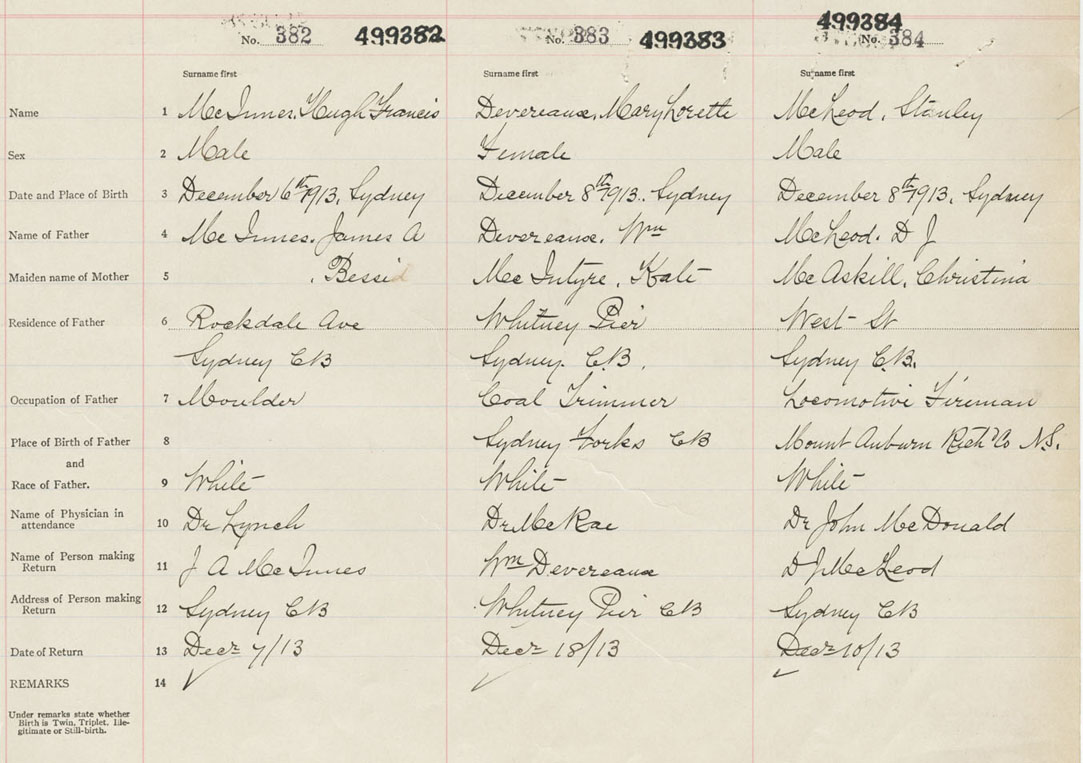 No. 382 499382 No. 383 499383 499384
No. 384
Surname first Surname first Surname first
Name 1 McInnes, Hugh Francis Devereaux, Mary Lorette McLeod, Stanley
Sex 2 Male Female Male
Date and Place of Birth 3 December 6th 1913, Sydney December 8th 1913.. Sydney December 8th 1913, Sydney
Name of Father 4 McInnes. James A Devereaux. Wm McLeod. D J
Maiden name of Mother 5 , Bessie McIntyre, Kate McAskill, Christina
Residence of Father 6 Rockdale Ave Whitney Pier West St
Sydney CB Sydney. C.B. Sydney C.B.
Occupation of Father 7 Moulder Coal Trimmer Locomotive Fireman
Place of Birth of Father 8 Sydney Forks CB Mount Auburn Rich Co N.S.
and
Race of Father. 9 White White White
Name of Physician in attendance 10 Dr Lynch Dr McRae Dr John McDonald
Name of Person making Return 11 J A McInnes Wm Devereaux D J McLeod
Address of Person making Return 12 Sydney CB Whitney Pier CB Sydney CB
Date of Return 13 Decr 7/13 Decr 18/13 Decr 10/13
REMARKS 14
Under remarks state whether
Birth is Twin, Triplet, Ille-
gitimate or Still-birth.